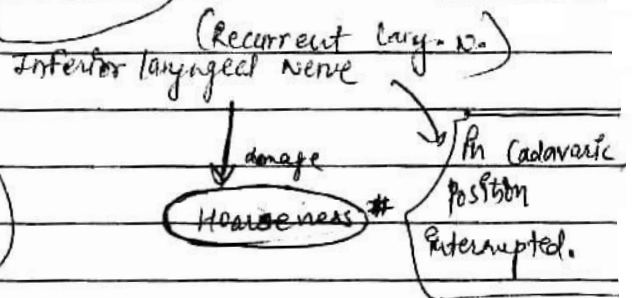 (Recurrent Lary. N.)
Inferior laryngeal Nerve
damage
Hoarseness #
In Cadavaric
Position
interrupted.